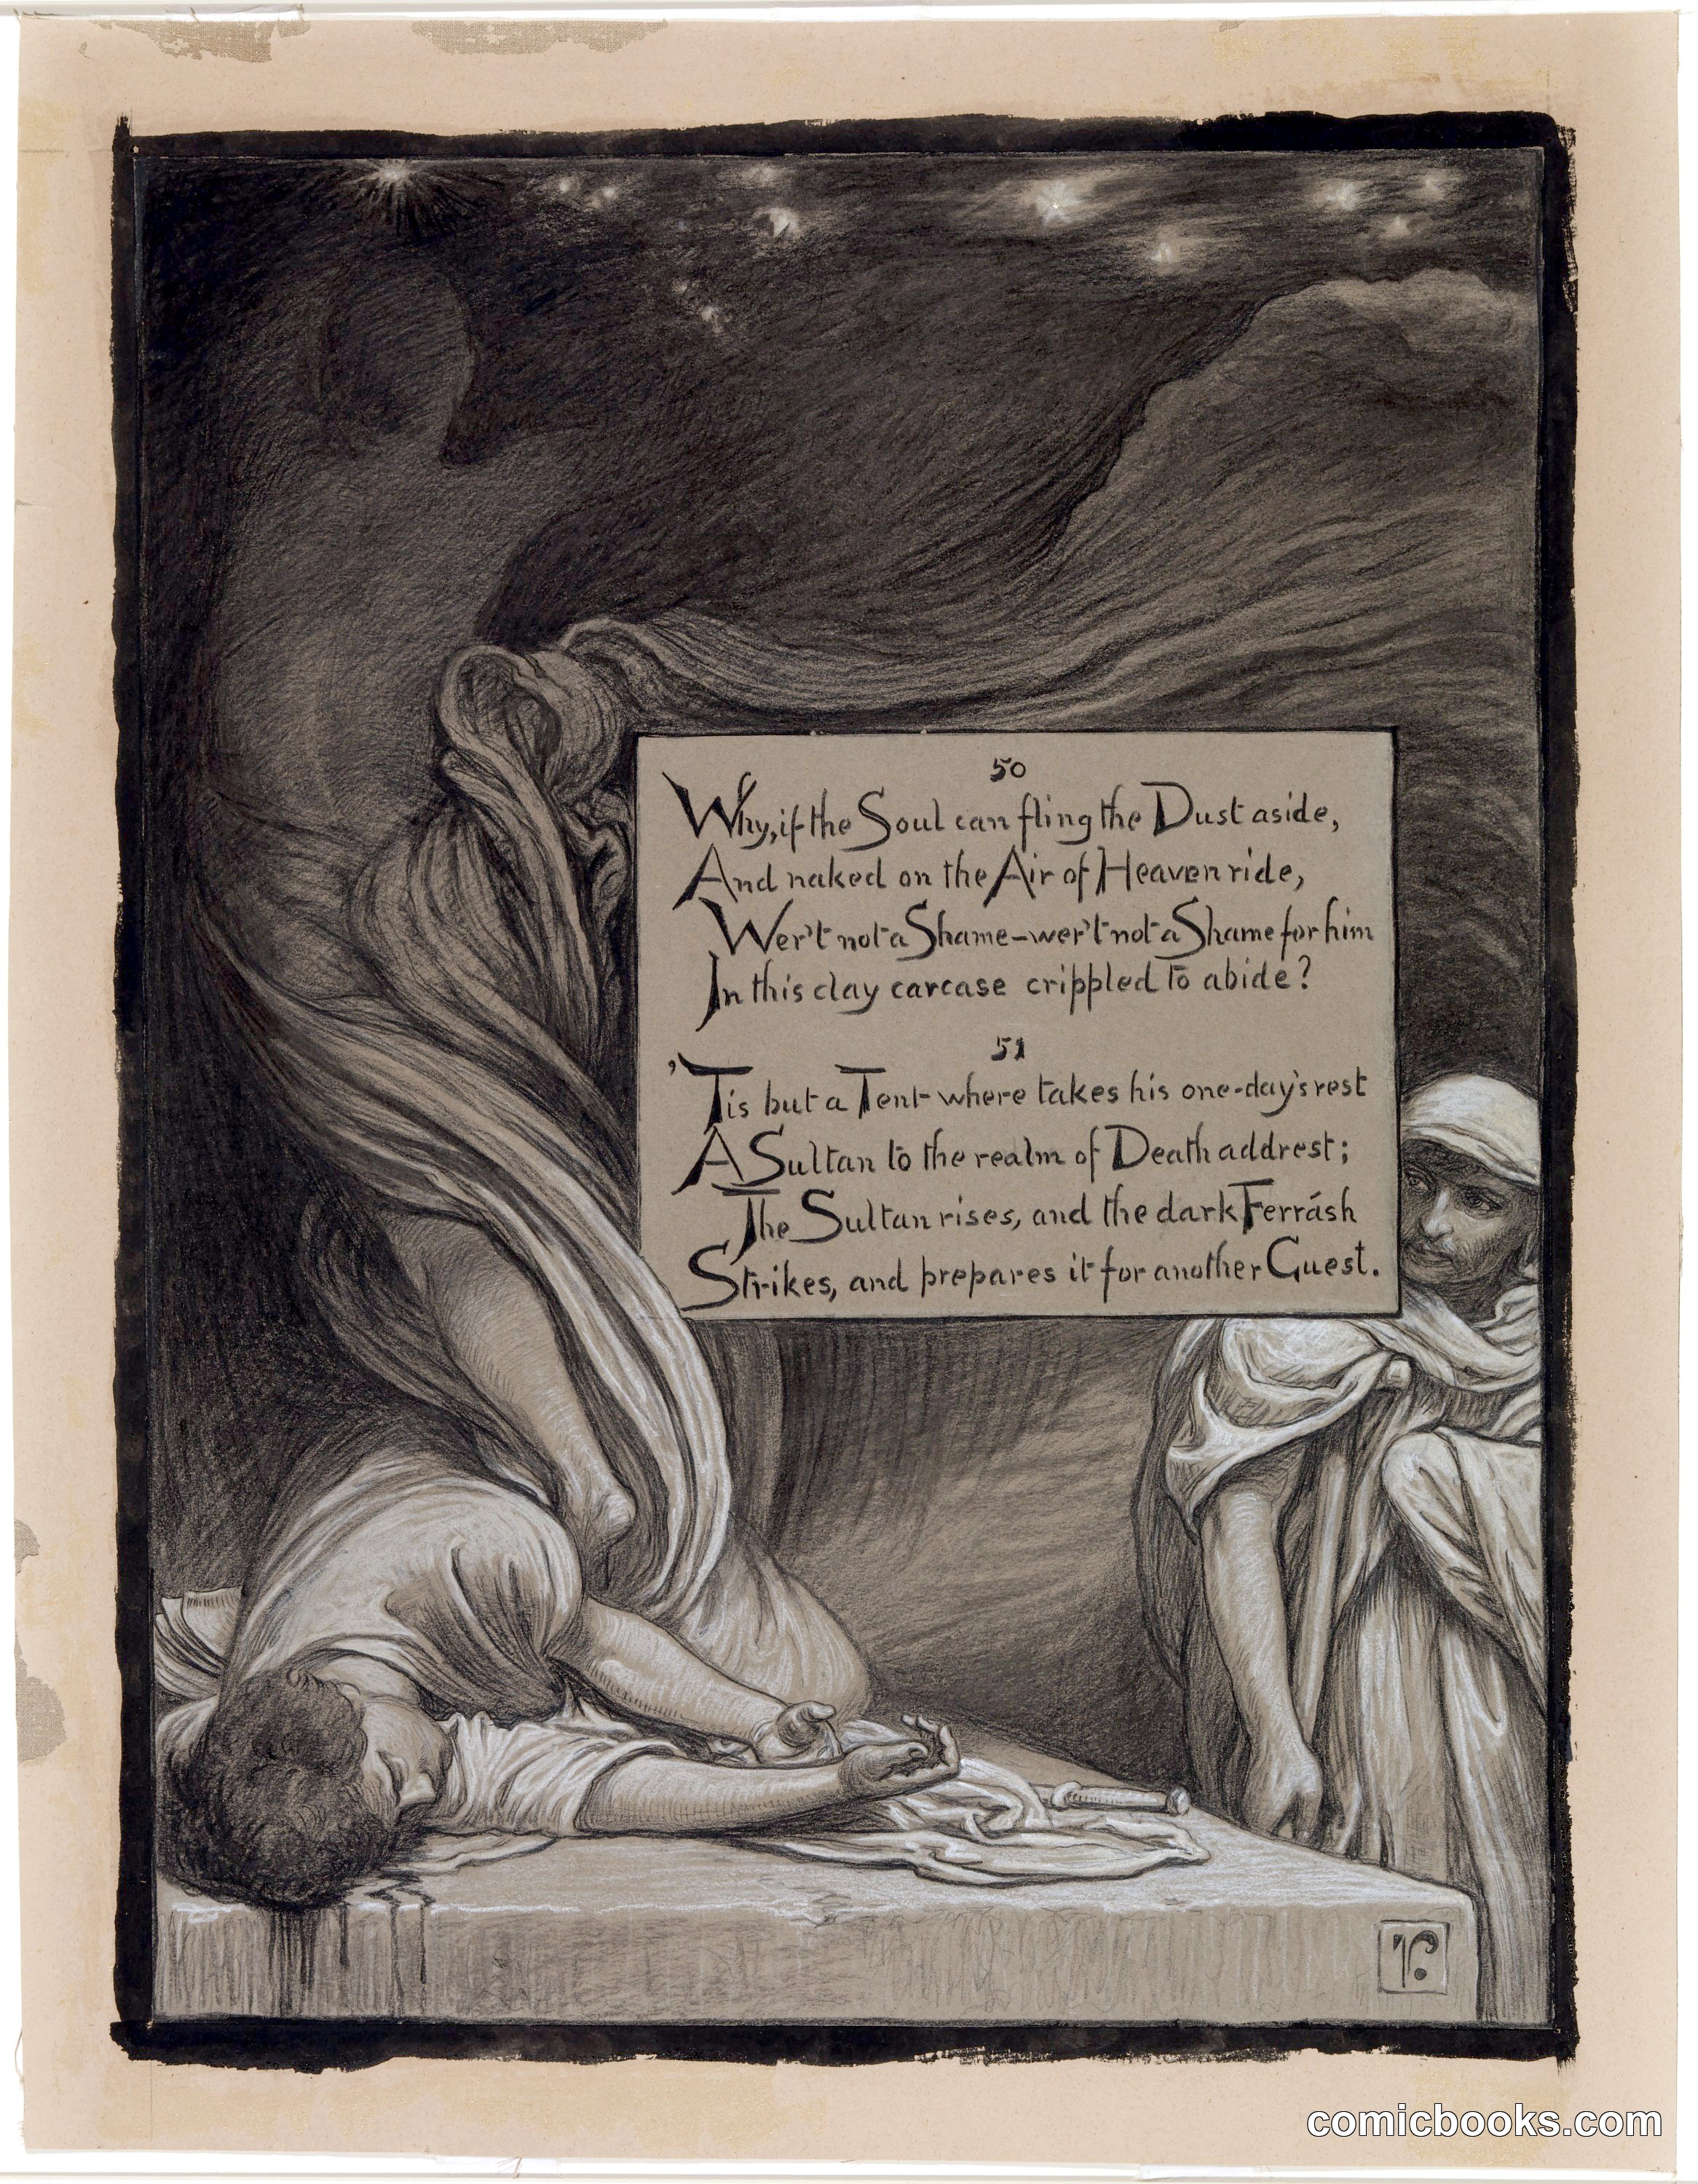 50
Why, if the Soul can fling the Dust aside,
And naked on the Air of Heaven ride,
Wer't not a Shame—wer't not a Shame for him
In this clay carcase crippled to abide?
51
'Tis but a Tent where takes his one-day's rest
A Sultan to the realm of Death addrest;
The Sultan rises, and the dark Ferrásh
Strikes, and prepares it for another Guest.
V.
comicbooks.com